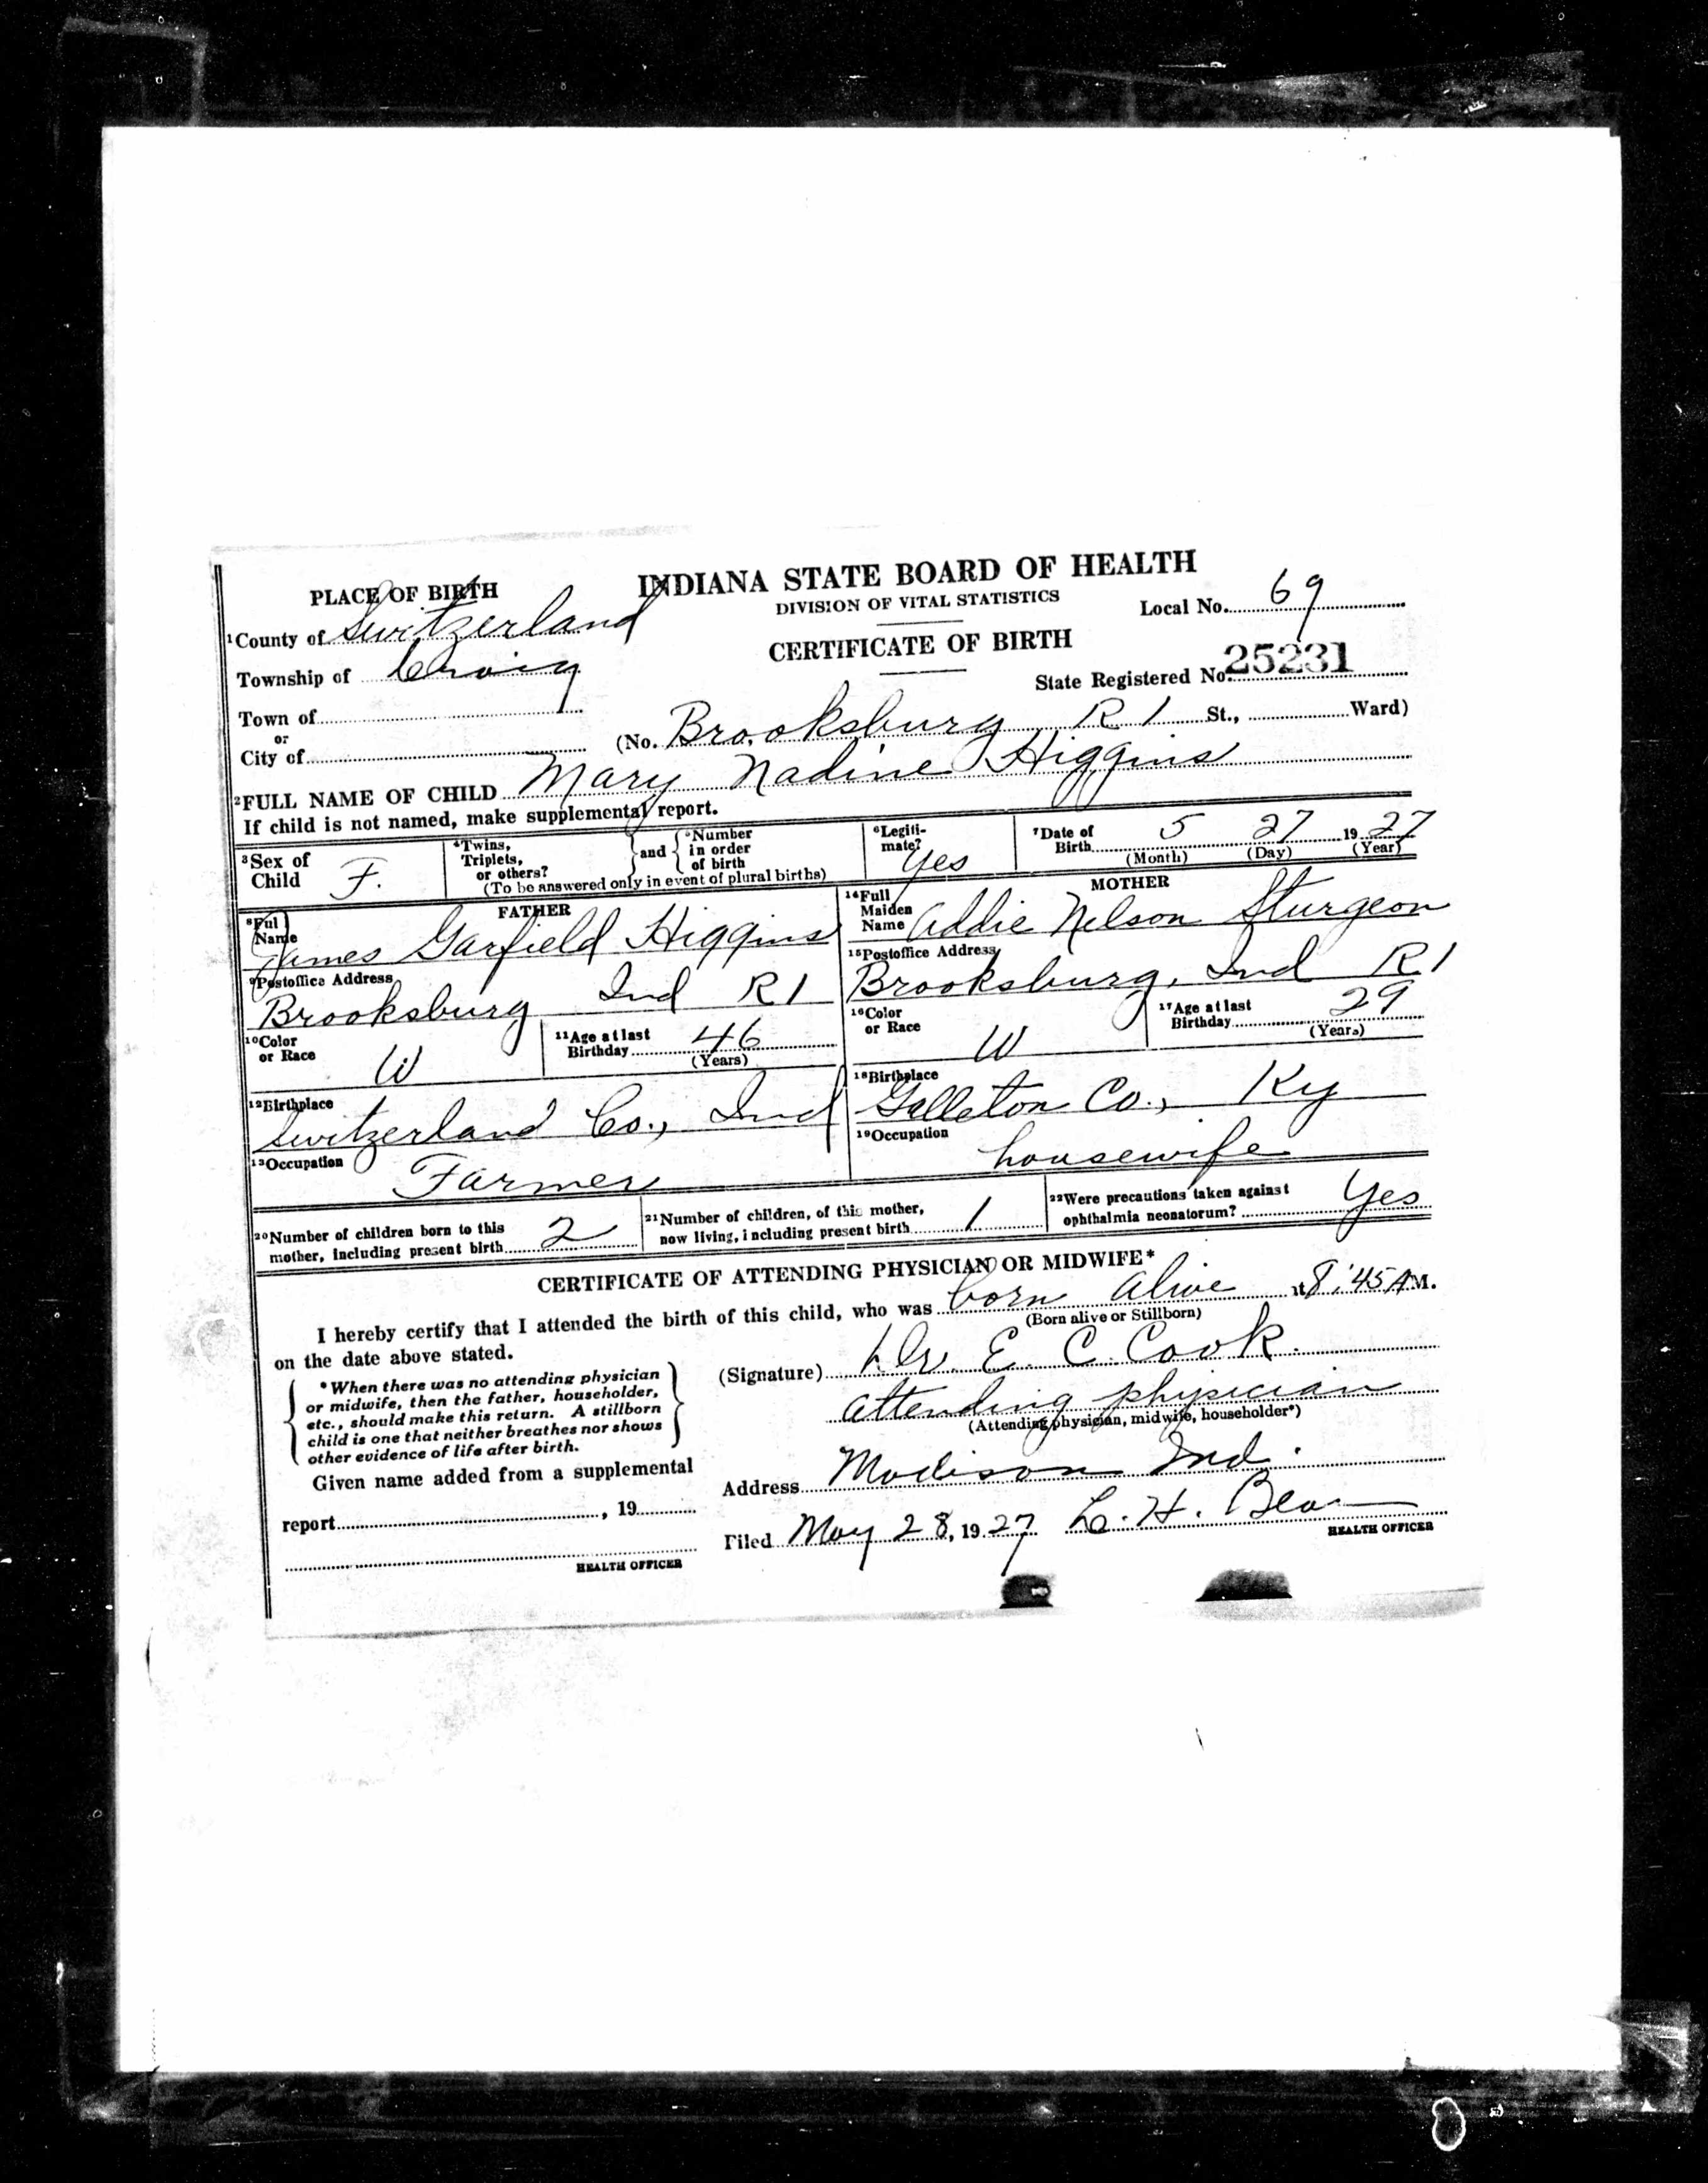 INDIANA STATE BOARD OF HEALTH
DIVISION OF VITAL STATISTICS
CERTIFICATE OF BIRTH
PLACE OF BIRTH
Local No. 69
1 County of Switzerland
Township of Craig
State Registered No. 25231
Town of
or
City of
(No. Brooksburg R 1 St., Ward)
2 FULL NAME OF CHILD Mary Nadine Higgins
If child is not named, make supplemental report.
3 Sex of Child F.
4 Twins, Triplets, or others? and 5 Number in order of birth
(To be answered only in event of plural births)
6 Legitimate? Yes
7 Date of Birth 5 27 1927
(Month) (Day) (Year)
FATHER
8 Full Name James Garfield Higgins
9 Postoffice Address
Brooksburg Ind R 1
10 Color or Race W
11 Age at last Birthday 46
(Years)
12 Birthplace
Switzerland Co., Ind
13 Occupation Farmer
MOTHER
14 Full Maiden Name Addie Nelson Sturgeon
15 Postoffice Address
Brooksburg, Ind R 1
16 Color or Race W
17 Age at last Birthday 29
(Years)
18 Birthplace
Galleton Co., Ky
19 Occupation housewife
20 Number of children born to this mother, including present birth 2
21 Number of children, of this mother, now living, including present birth 1
22 Were precautions taken against ophthalmia neonatorum? Yes
CERTIFICATE OF ATTENDING PHYSICIAN OR MIDWIFE*
I hereby certify that I attended the birth of this child, who was born alive at 8:45 A M.
(Born alive or Stillborn)
on the date above stated.
*When there was no attending physician
or midwife, then the father, householder,
etc., should make this return. A stillborn
child is one that neither breathes nor shows
other evidence of life after birth.
(Signature) Dr. E. C. Cook.
attending physician
(Attending physician, midwife, householder*)
Given name added from a supplemental
report , 19
HEALTH OFFICER
Address Madison Ind.
Filed May 28, 1927 L. H. Bear
HEALTH OFFICER